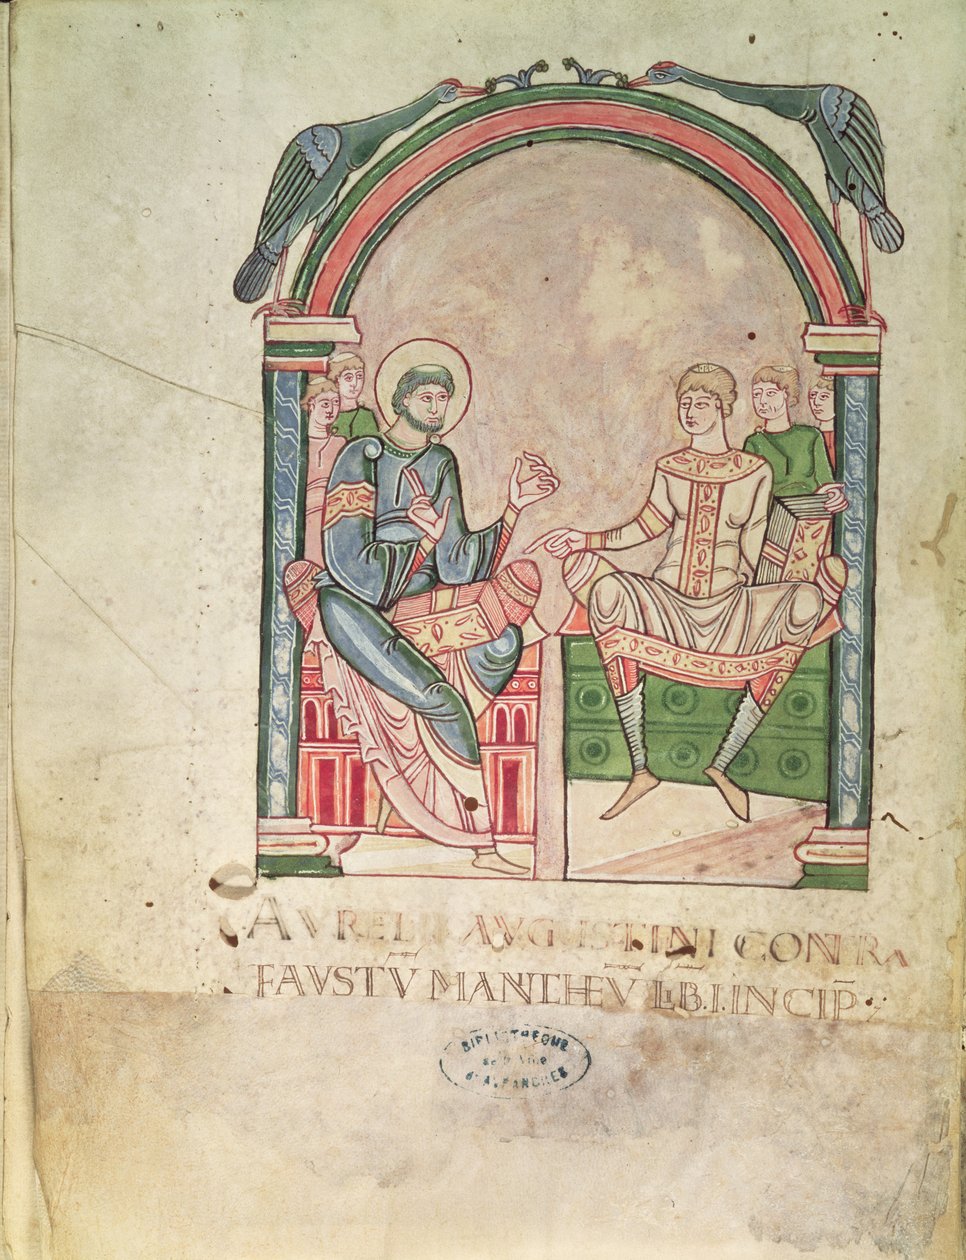 AVRELII AVGUSTINI CONTRA
FAVSTV̄ MANTHEV̄ LIB̄.I.INCIP̄
BIBLIOTHEQUE
de la Ville
d'AVRANCHES